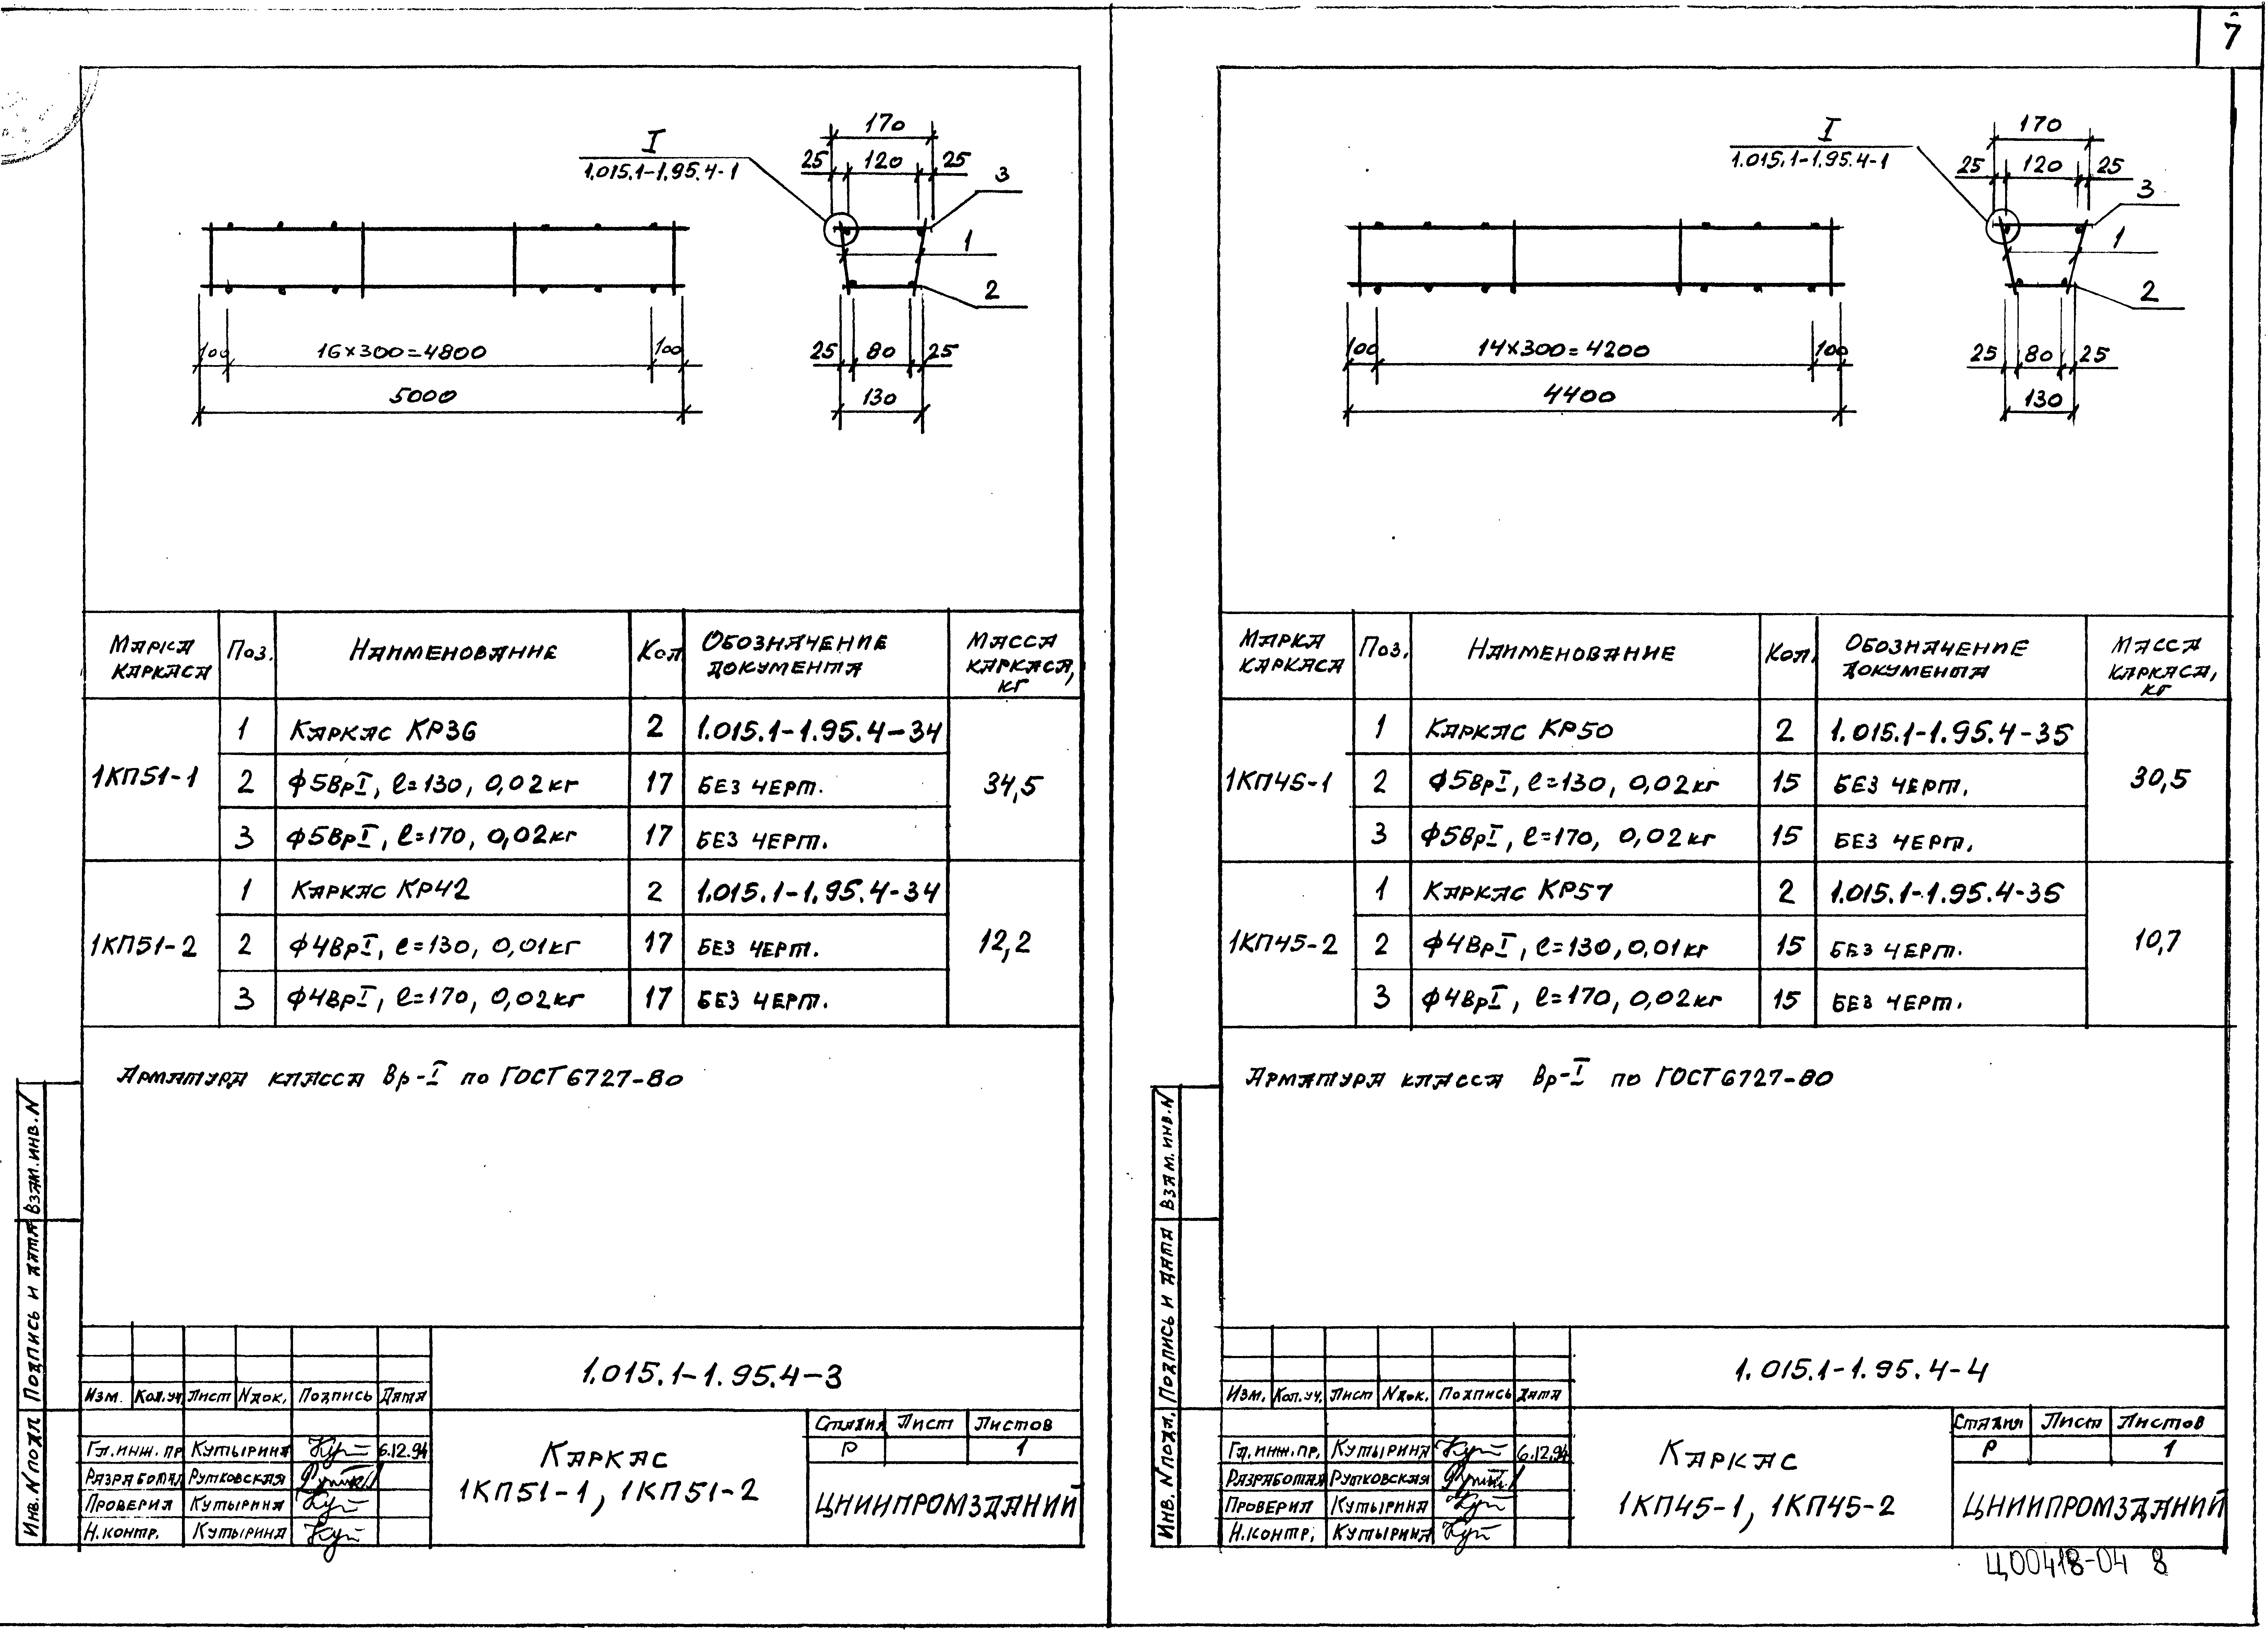 7
I
1.015.1-1.95.4-1
170
25 120 25
3
1
2
100 16×300=4800 100
5000
25 80 25
130
Марка каркаса Поз. Наименование Кол Обозначение документа Масса каркаса, кг
1КП51-1
1 Каркас КР36 2 1.015.1-1.95.4-34
2 ф5ВрI, ℓ=130, 0,02кг 17 без черт.
34,5
3 ф5ВрI, ℓ=170, 0,02кг 17 без черт.
1КП51-2
1 Каркас КР42 2 1.015.1-1.95.4-34
2 ф4ВрI, ℓ=130, 0,01кг 17 без черт.
12,2
3 ф4ВрI, ℓ=170, 0,02кг 17 без черт.
Арматура класса Вр-I по ГОСТ 6727-80
Взам.инв.N
Подпись и дата
Инв. N подл
1.015.1-1.95.4-3
Изм. Кол.уч Лист Nдок. Подпись Дата
Гл.инж.пр Кутырина 6.12.94
Разработал Рутковская
Проверил Кутырина
Н.контр. Кутырина
Каркас
1КП51-1, 1КП51-2
Стадия Лист Листов
Р 1
ЦНИИПРОМЗДАНИЙ
I
1.015.1-1.95.4-1
170
25 120 25
3
1
2
100 14×300=4200 100
4400
25 80 25
130
Марка каркаса Поз. Наименование Кол. Обозначение документа Масса каркаса, кг
1КП45-1
1 Каркас КР50 2 1.015.1-1.95.4-35
2 ф5ВрI, ℓ=130, 0,02кг 15 без черт.
30,5
3 ф5ВрI, ℓ=170, 0,02кг 15 без черт.
1КП45-2
1 Каркас КР57 2 1.015.1-1.95.4-35
2 ф4ВрI, ℓ=130, 0,01кг 15 без черт.
10,7
3 ф4ВрI, ℓ=170, 0,02кг 15 без черт.
Арматура класса Вр-I по ГОСТ 6727-80
Взам.инв.N
Подпись и дата
Инв. N подл.
1.015.1-1.95.4-4
Изм. Кол.уч. Лист Nдок. Подпись Дата
Гл.инж.пр. Кутырина 6.12.94
Разработал Рутковская
Проверил Кутырина
Н.контр. Кутырина
Каркас
1КП45-1, 1КП45-2
Стадия Лист Листов
Р 1
ЦНИИПРОМЗДАНИЙ
Ц00418-04 8